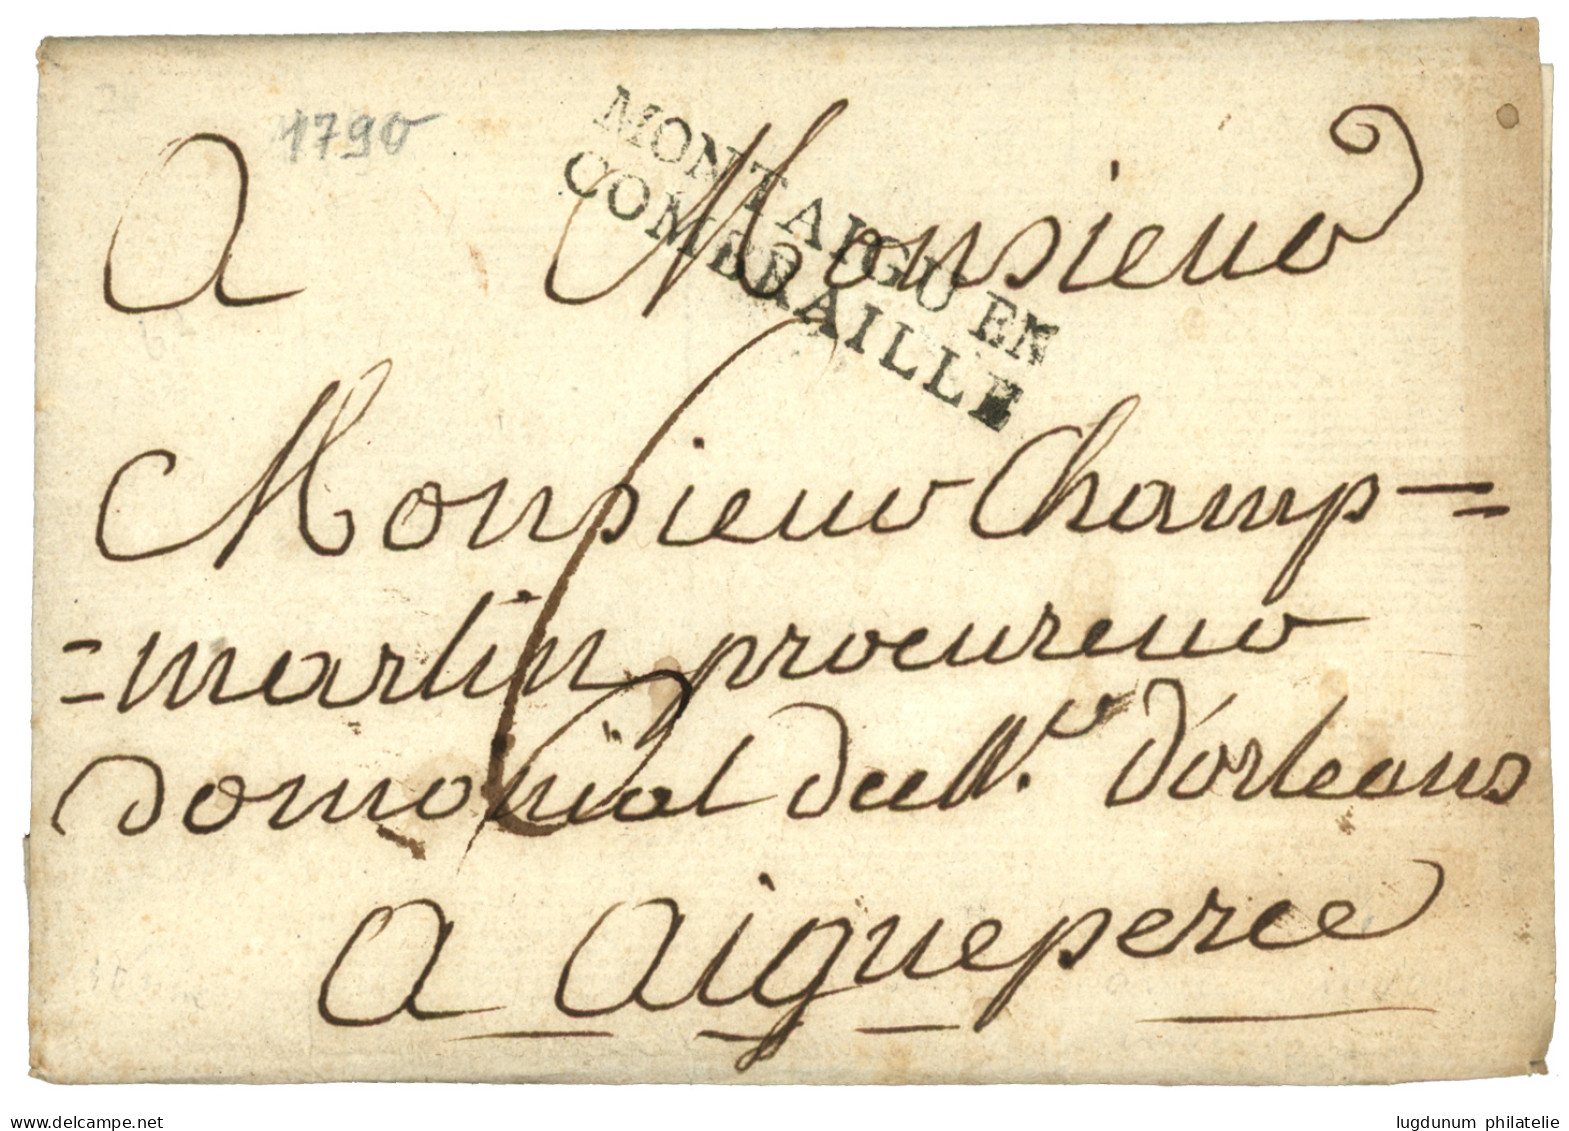 1790
MONTAIGU EN
COMBRAILLE
A Monsieur
Monsieur Champ=
=martin procureur
domanial de Mr. d'orleans
A Aigueperce
6
www.delcampe.net
lugdunum philatelie